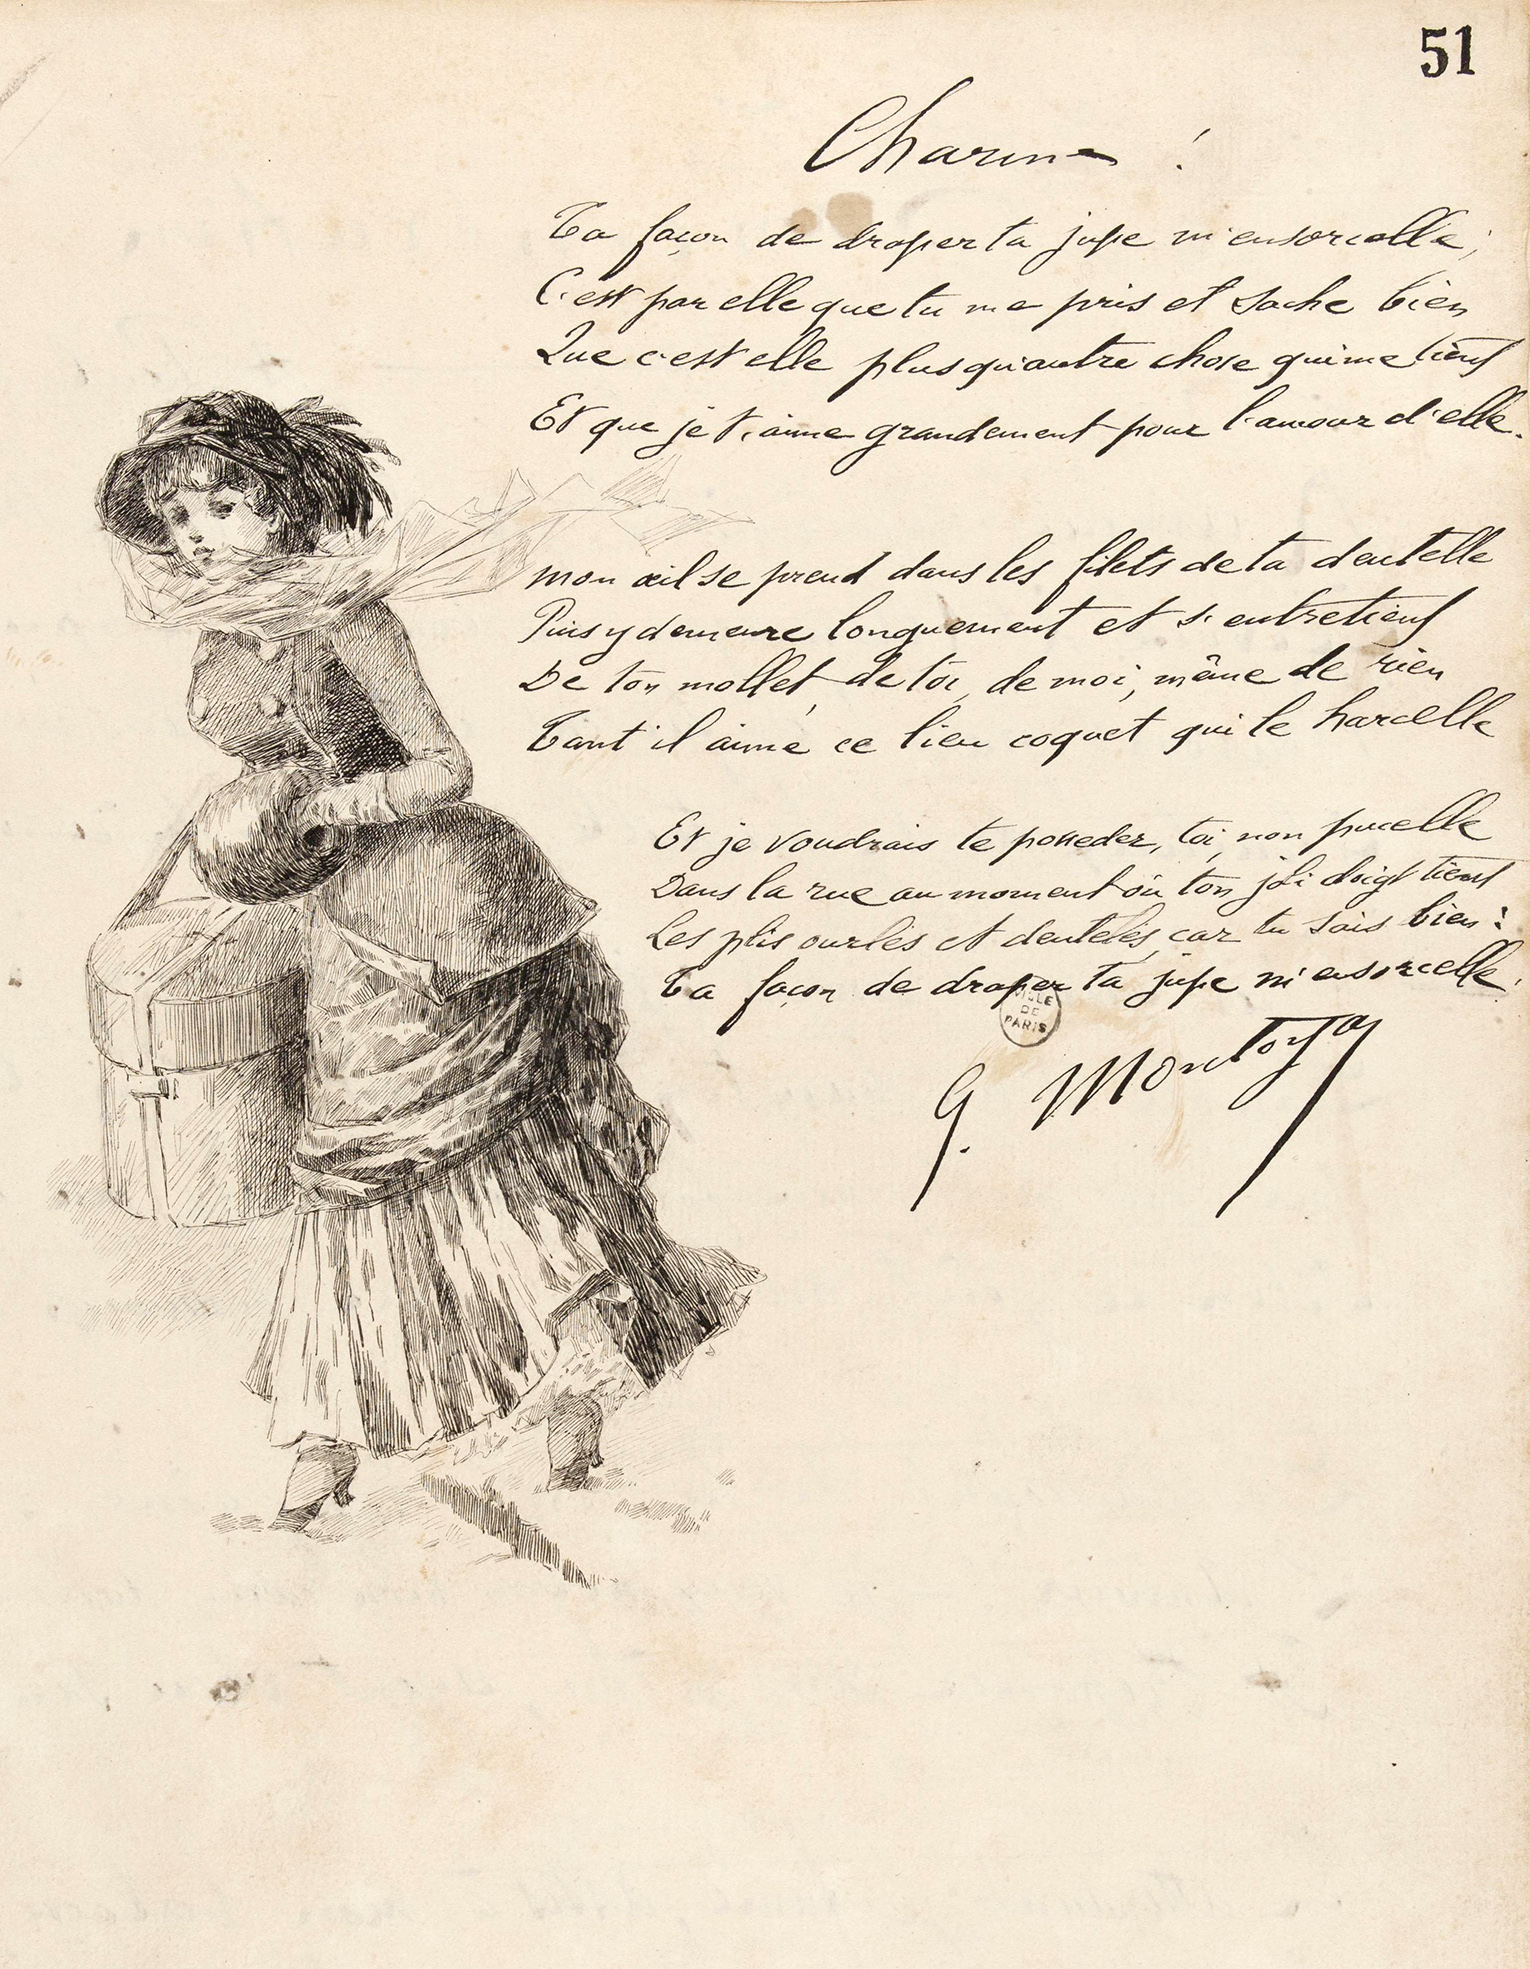 51
Charme !
Ta façon de draper ta jupe m'ensorcelle;
C'est par elle que tu me pris et sache bien
Que c'est elle plus qu'autre chose qui me tient
Et que je t'aime grandement pour l'amour d'elle.
Mon œil se prend dans les filets de ta dentelle
Puis y demeure longuement et s'entretient
De ton mollet, de toi, de moi, même de rien
Tant il aime ce lieu coquet qui le harcelle
Et je voudrais te posseder, toi, non pucelle
Dans la rue au moment où ton joli doigt tient
Les plis ourlés et dentelés, car tu sais bien :
Ta façon de draper ta jupe m'ensorcelle.
VILLE
DE
PARIS
G. Montoya